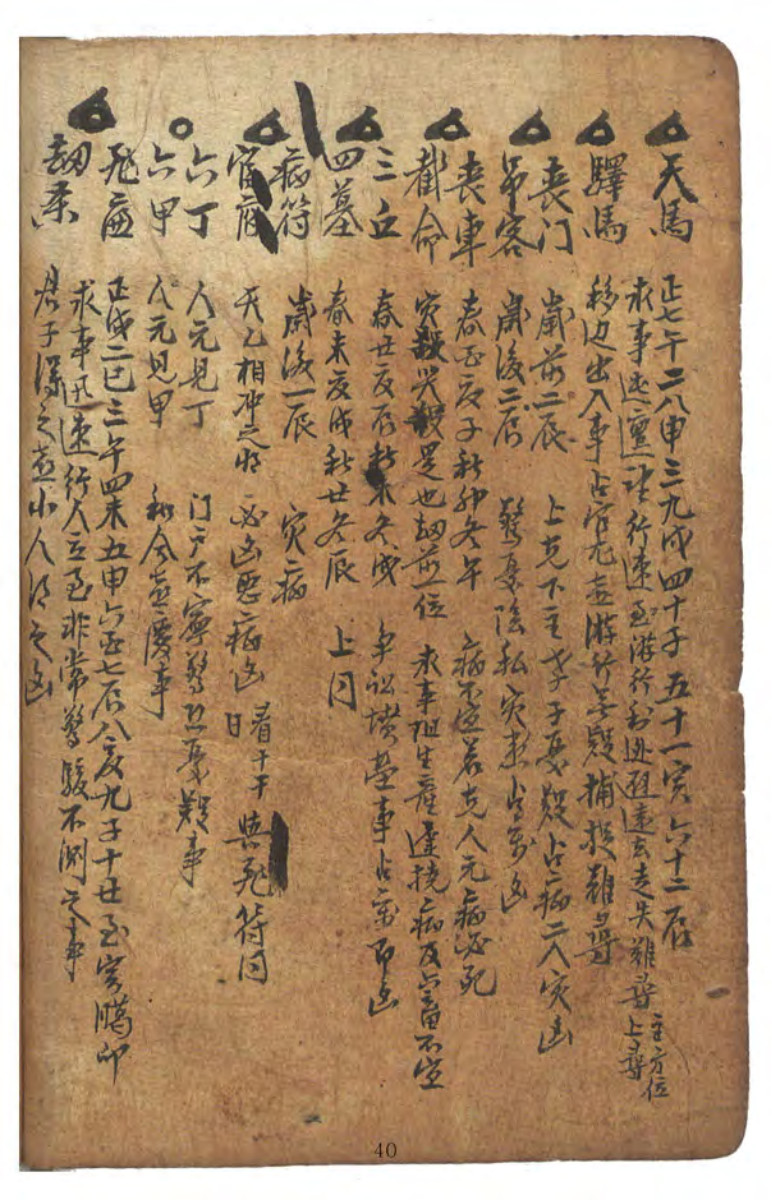 天馬 正七午二八申三九戌四十子五十一寅六十二辰
求事 行速至游行利 遠去走失難尋 主方位上尋
驛馬 移迁出入事占官尤吉游行無疑捕投難尋
喪门 歲前二辰 上克下主孝子憂疑占病二人灾凶
吊客 歲後二辰 驚憂陰私灾患占病凶
喪車 春酉夏子秋卯冬午 病不宜若克人元病必死
截命 灾殺哭殺是也劫前一位 求事阻生產 病及六畜不宜
三丘 春丑夏辰秋未冬戌 争訟墳墓事占病即凶
四墓 春未夏戌秋丑冬辰 上同
病符 歲後一辰 灾病
官府 天乙相冲之将 必凶惡病凶 看十干 與飛符同
日
六丁 人元見丁 门户不寧驚恐憂疑事
六甲 人元見甲 和合吉慶事
飛廉 正戌二巳三午四未五申六酉七辰八亥九子十丑至寅 卯
求事迅速行人立至非常驚駭不測之事
劫煞 君子得之吉小人得之凶
40